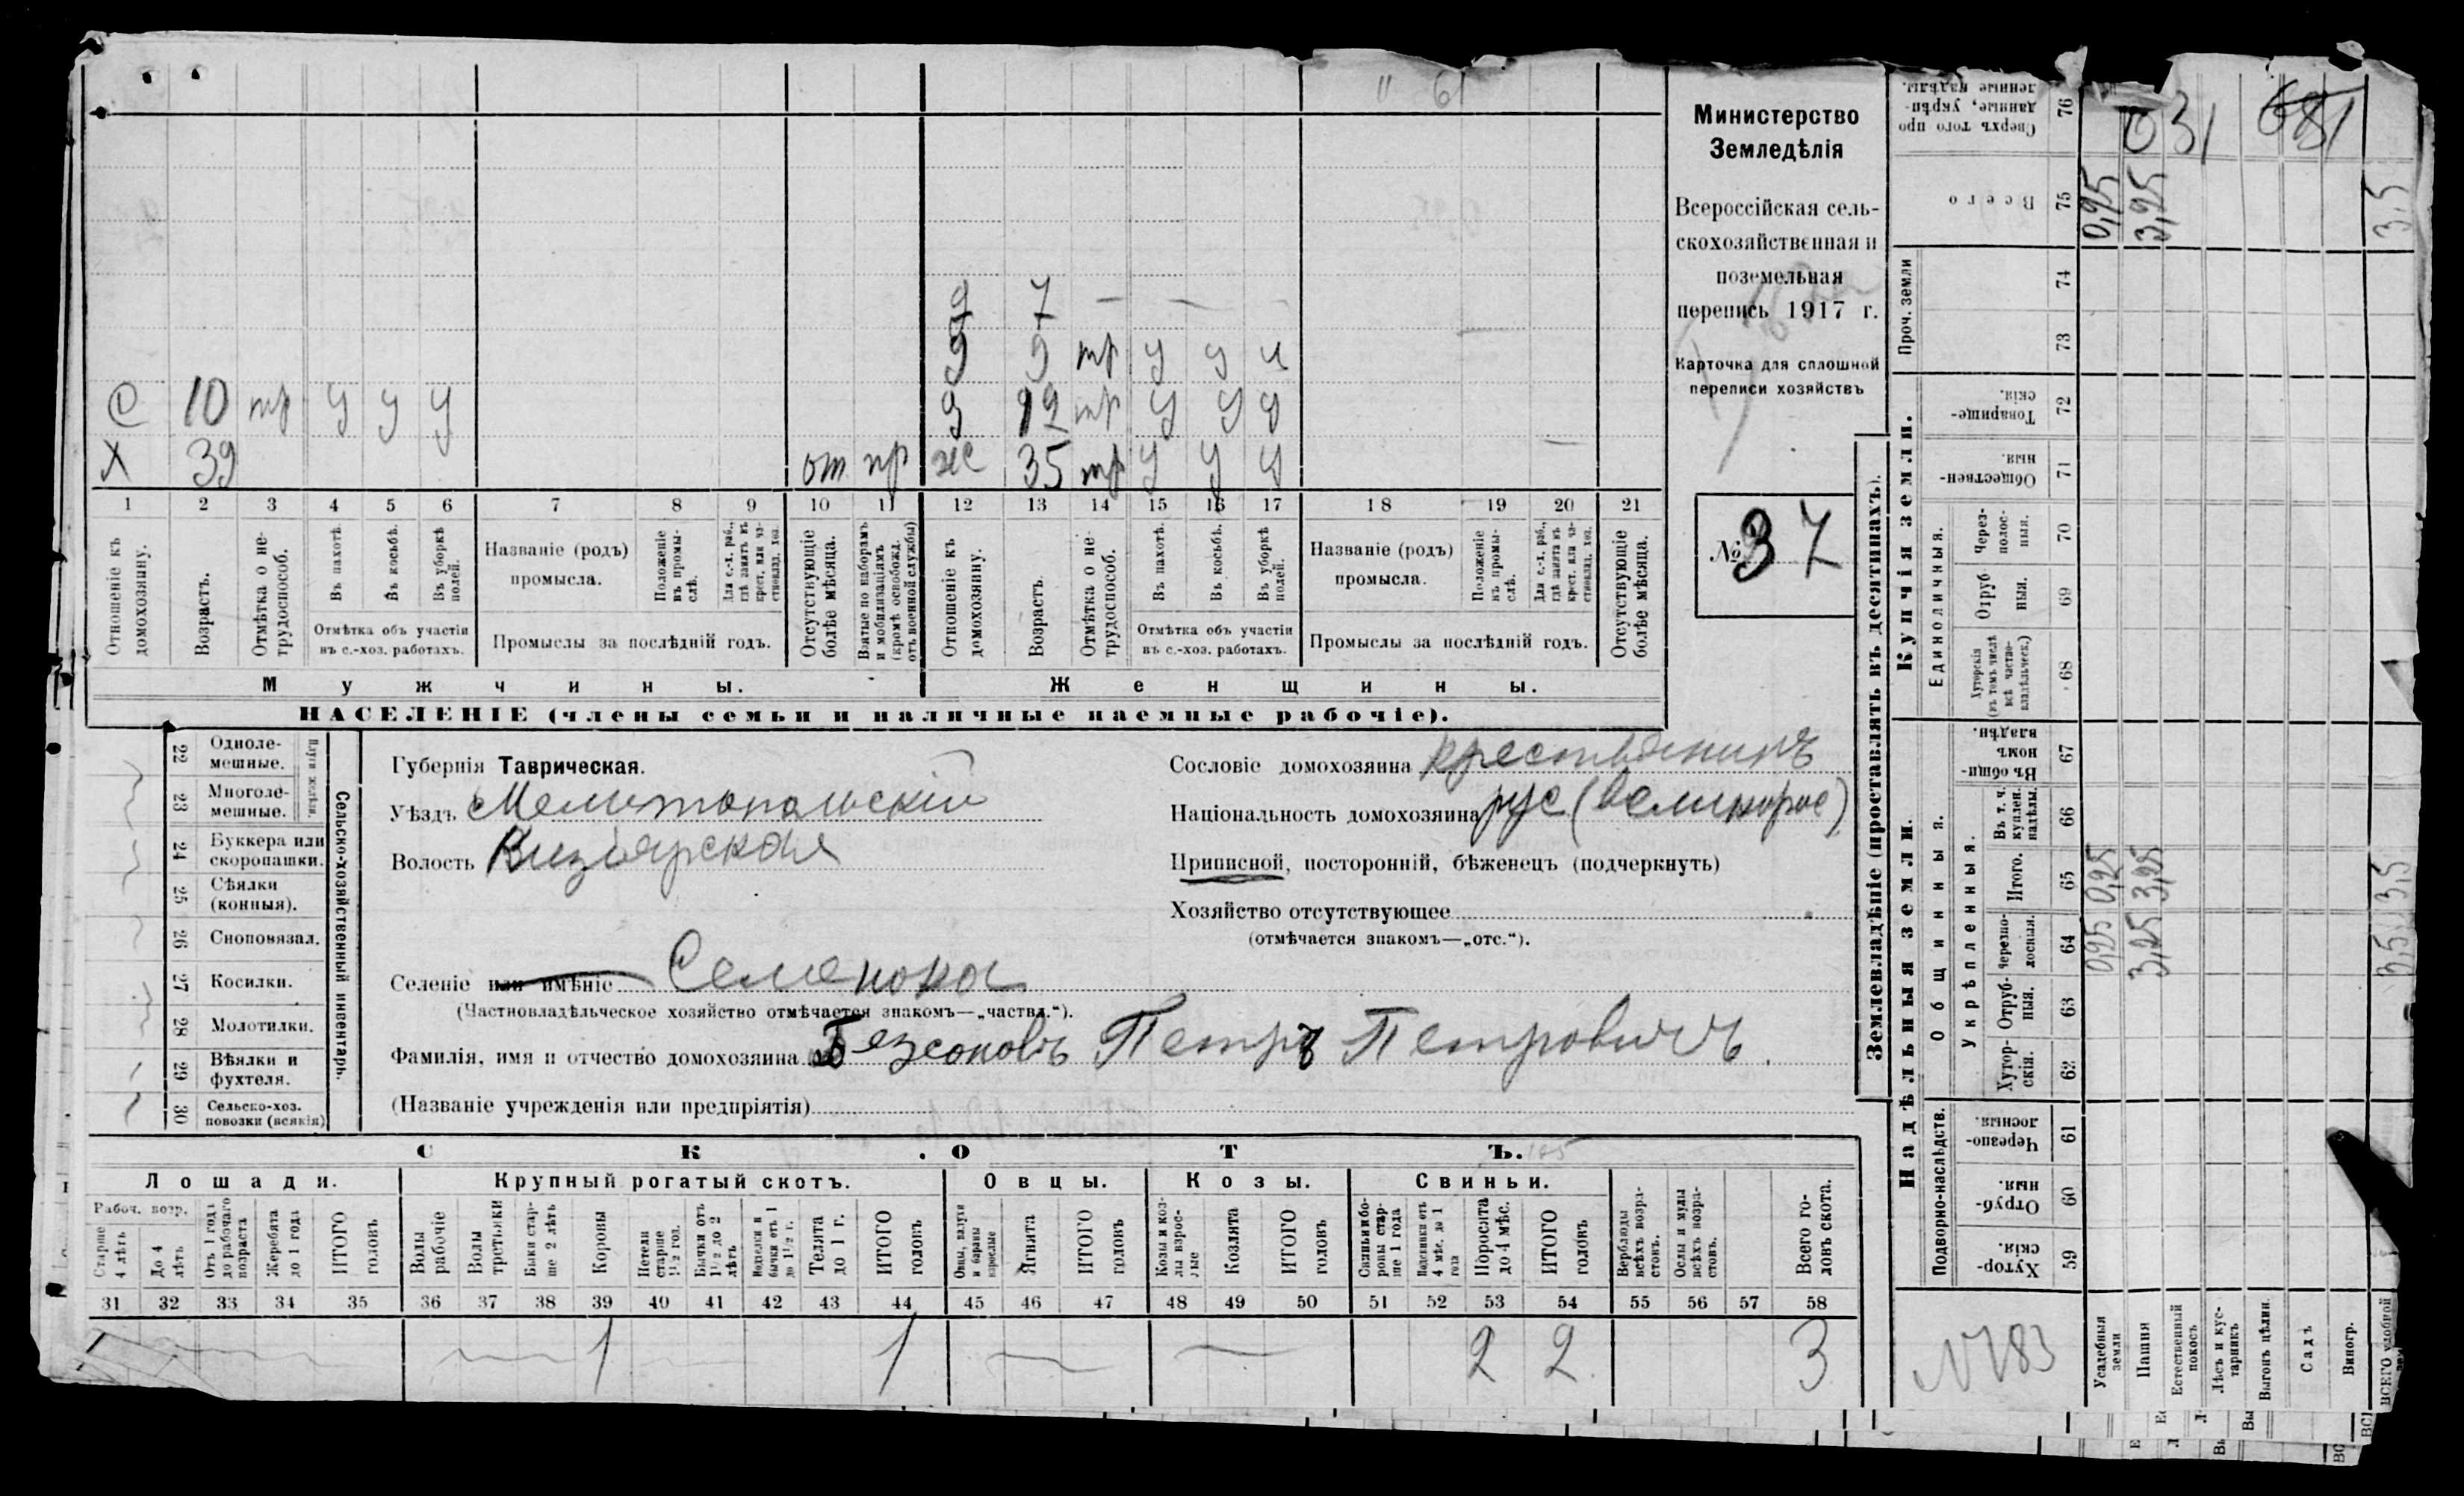 " 61
д 7 — —
д 9 тр у у у
С 10 тр у у у д 12 тр у у у
Х 39 от пр же 35 тр у у у
1 2 3 4 5 6 7 8 9 10 11 12 13 14 15 16 17 18 19 20 21
Отношеніе къ домохозяину.
Возрастъ.
Отмѣтка о не-трудоспособ.
Въ пахотѣ.
Въ косьбѣ.
Въ уборкѣ полей.
Отмѣтка объ участіи въ с.-хоз. работахъ.
Названіе (родъ) промысла.
Положеніе въ промы-слѣ.
Для с.-х. раб., гдѣ занятъ въ крест. или ча-стновлад. хоз.
Промыслы за послѣдній годъ.
Отсутствующіе болѣе мѣсяца.
Взятые по наборамъ и мобилизаціямъ (кромѣ освобожд. отъ военной службы)
Отношеніе къ домохозяину.
Возрастъ.
Отмѣтка о не-трудоспособ.
Въ пахотѣ.
Въ косьбѣ.
Въ уборкѣ полей.
Отмѣтка объ участіи въ с.-хоз. работахъ.
Названіе (родъ) промысла.
Положеніе въ промы-слѣ.
Для с.-х. раб., гдѣ занята въ крест. или ча-стновлад. хоз.
Промыслы за послѣдній годъ.
Отсутствующіе болѣе мѣсяца.
Мужчины. Женщины.
НАСЕЛЕНІЕ (члены семьи и наличные наемные рабочіе).
Министерство
Земледѣлія
Всероссійская сель-
скохозяйственная и
поземельная
перепись 1917 г.
Карточка для сплошной
переписи хозяйствъ
№ 37
22 Одноле-мешные.
23 Многоле-мешные.
24 Буккера или скоропашки.
25 Сѣялки (конныя).
26 Сноповязал.
27 Косилки.
28 Молотилки.
29 Вѣялки и фухтеля.
30 Сельско-хоз. повозки (всякія)
Сельско-хозяйственный инвентарь.
Губернія Таврическая.
Уѣздъ Мелитопольскій
Волость Кизіярская
Селеніе или имѣніе Семеновка
(Частновладѣльческое хозяйство отмѣчается знакомъ—„частвл.“).
Фамилія, имя и отчество домохозяина Безсоновъ Петръ Петровичъ.
(Названіе учрежденія или предпріятія)
Сословіе домохозяина крестьянинъ
Національность домохозяина рус (великорос)
Приписной, посторонній, бѣженецъ (подчеркнуть)
Хозяйство отсутствующее
(отмѣчается знакомъ—„отс.“).
СКОТЪ.
Лошади. Крупный рогатый скотъ. Овцы. Козы. Свиньи.
Рабоч. возр.
Старше 4 лѣтъ
До 4 лѣтъ
Отъ 1 года до рабочаго возраста
Жеребята до 1 года
ИТОГО головъ
Волы рабочіе
Волы третьяки
Быки стар-ше 2 лѣтъ
Коровы
Нетели старше 1½ год.
Бычки отъ 1½ до 2 лѣтъ
Телята до 1 г.
ИТОГО головъ
Овцы, валухи и бараны взрослые
Ягнята
ИТОГО головъ
Козы и коз-лы взрос-лые
Козлята
ИТОГО головъ
Свиньи и бо-ровы стар-ше 1 года
Подсвинки отъ 4 мѣс. до 1 года
Поросята до 4 мѣс.
ИТОГО головъ
Верблюды всѣхъ возра-стовъ.
Ослы и мулы всѣхъ возра-стовъ.
Всего го-ловъ скота.
31 32 33 34 35 36 37 38 39 40 41 42 43 44 45 46 47 48 49 50 51 52 53 54 55 56 57 58
1 1 2 2 3
Землевладѣніе (проставлять въ десятинахъ).
Сверхъ того про-данные, укрѣп-ленные надѣлы. 76
Всего 75 0,25 3,25 3,5
Проч. земли 74 73
Купчія земли.
Товарище-скія. 72
Обществен-ныя. 71
Единоличныя.
Через-полос-ныя. 70
Отруб-ныя. 69
Хуторскія (въ томъ числѣ всѣ частно-владѣльческ.) 68
Надѣльныя земли.
Общинныя.
Въ общи-номъ владѣн. 67
Укрѣпленныя.
Въ т. ч. куплен. надѣлы. 66
Итого. 65 0,25 3,25 3,5
Черезпо-лосныя. 64 0,25 3,25 3,5
Отруб-ныя. 63
Хутор-скія. 62
Подворно-наслѣдств.
Черезпо-лосныя. 61
Отруб-ныя. 60
Хутор-скія. 59
031 681
N 783
Усадебныя земли
Пашня
Естественный покосъ
Лѣсъ и кус-тарникъ
Выгонъ цѣлин.
Садъ
Виногр.
ВСЕГО удобной